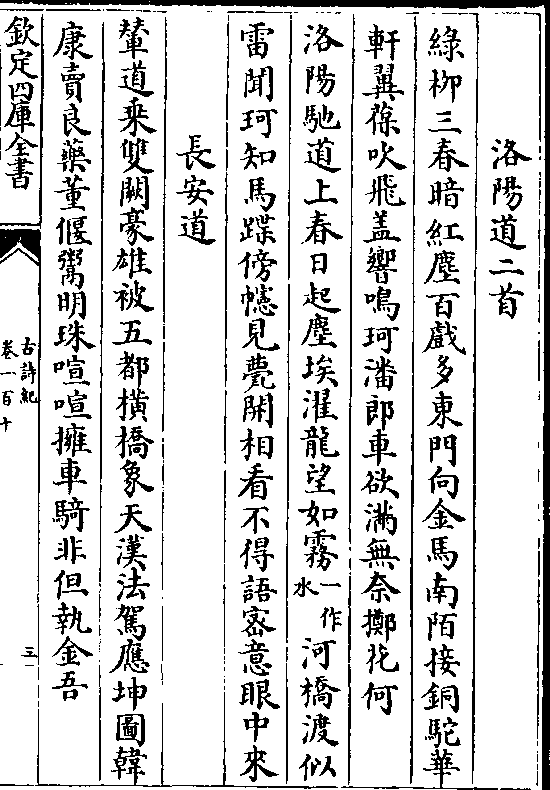 洛陽道二首
綠栁三春暗紅塵百戲多東門向金馬南陌接銅駝華
軒翼葆吹飛盖響鳴珂潘郎車欲滿無奈擲花何
洛陽馳道上春日起塵埃濯龍望如霧一作水河橋渡似
雷聞珂知馬蹀傍幰見甍開相看不得語密意眼中來
長安道
輦道乘雙闕豪雄被五都橫橋象天漢法駕應坤圖韓
康賣良藥董偃鬻明珠喧喧擁車騎非但執金吾
欽定四庫全書
古詩紀
卷一百十
三